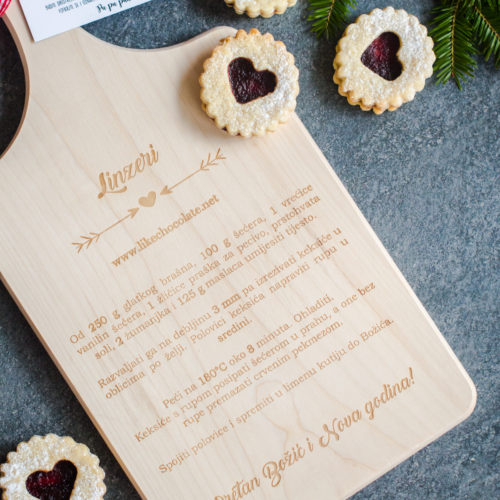 Linzeri
www.likechocolate.net
Od 250 g glatkog brašna, 100 g šećera, 1 vrećice
vanilin šećera, 1 žličice praška za pecivo, prstohvata
soli, 2 žumanjka i 125 g maslaca umijesiti tijesto.
Razvaljati ga na debljinu 3 mm pa izrezivati keksiće u
oblicima po želji. Polovici keksića napraviti rupu u
sredini.
Peći na 180°C oko 8 minuta. Ohladiti.
Keksiće s rupom posipati šećerom u prahu, a one bez
rupe premazati crvenim pekmezom.
Spojiti polovice i spremiti u limenu kutiju do Božića.
Sretan Božić i Nova godina!